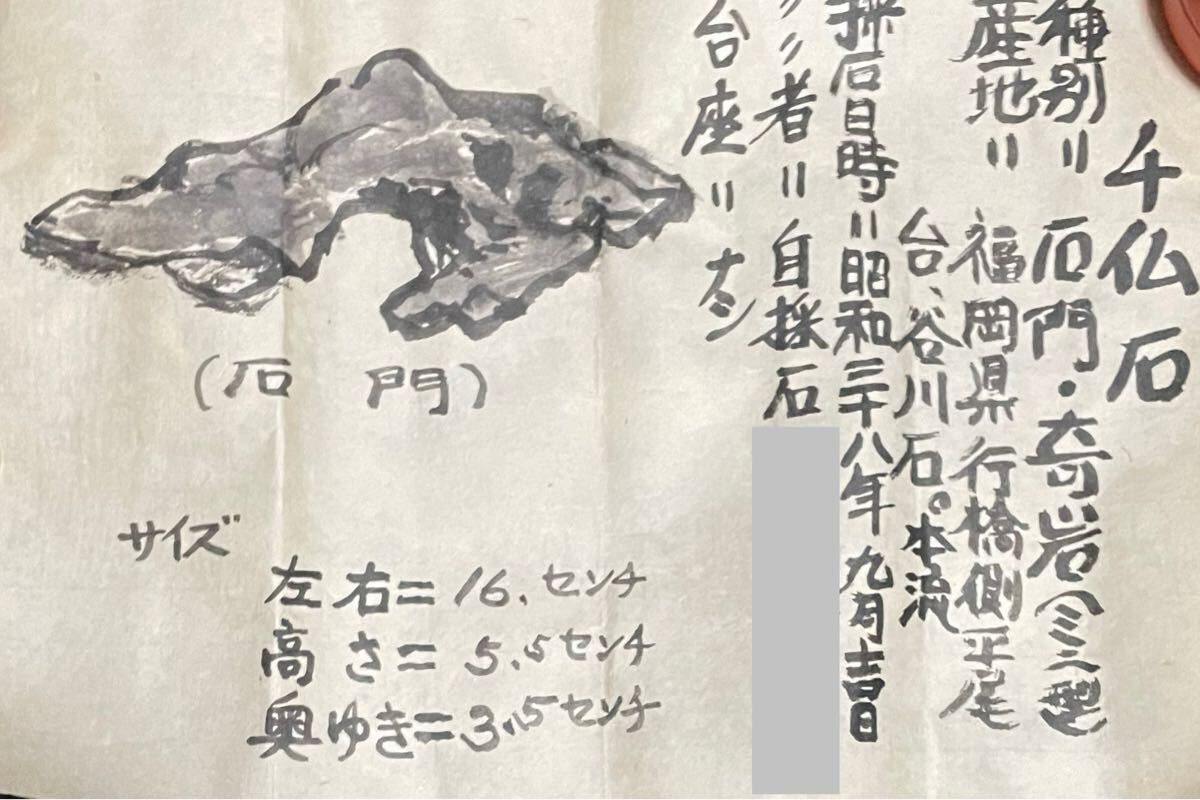 千仏石
種別＝石門・奇岩（ミニ型）
産地＝福岡県行橋側平尾
台、谷川石。本流
採石日時＝昭和三十八年九月吉日
〃〃者＝自採石
台座＝ナシ
（石 門）
サイズ
左右＝16.センチ
高さ＝5.5センチ
奥ゆき＝3.5センチ